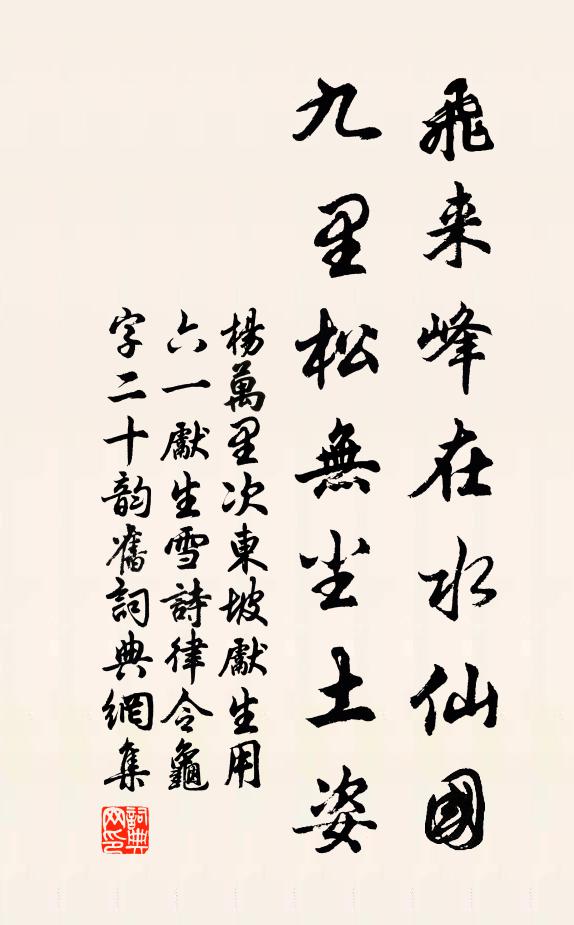 飛来峰在水仙國
九里松無尘土姿
楊萬里次東坡獻生用
六一獻生雪詩律令龜
字二十韵舊詞典網集
詞典网印